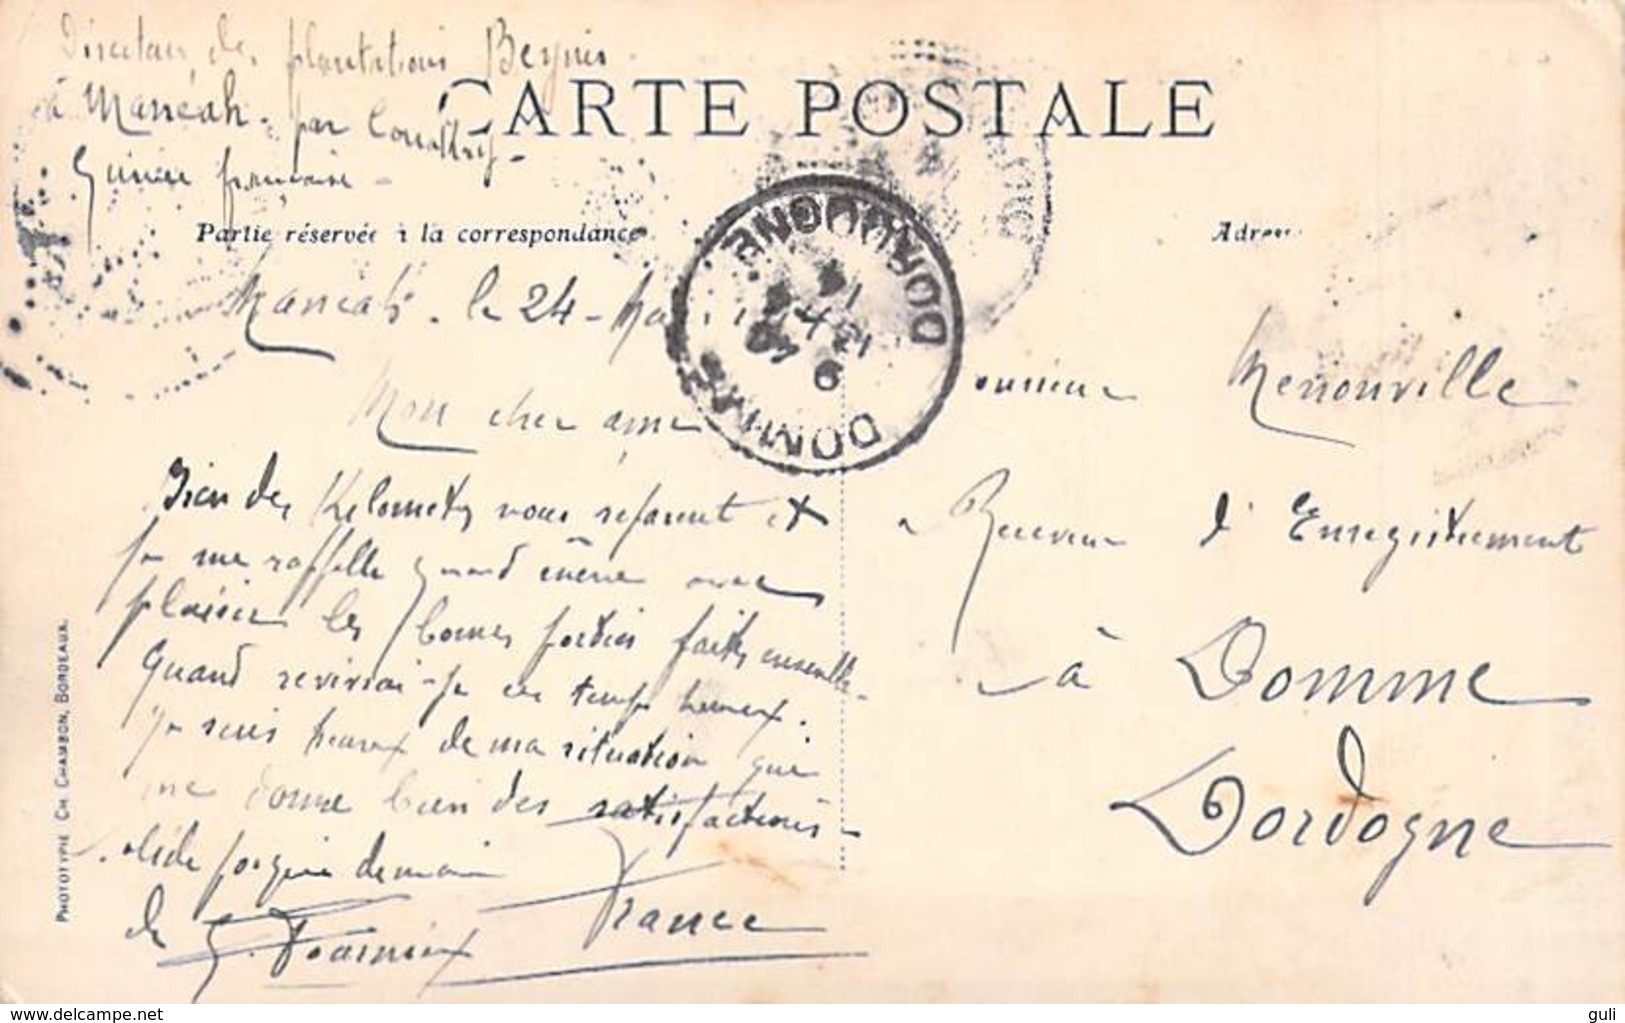 Directeur des plantations Beynis
à Manéah. par Conakry -
Guinée française -
CARTE POSTALE
Partie réservée à la correspondance
Adresse
Manéah. le 24 - Ma
Mon cher ami
Bien des Kilomètres nous séparent et
je me rappelle quand même avec
plaisir les bonnes parties faites ensemble.
Quand reverrai-je ces temps heureux.
Je suis heureux de ma situation qui
me donne bien des satisfactions -
solide poignée de main
de G. Fournier
Monsieur Menonville
Receveur de l'Enregistrement
à Domme
Dordogne
France
DOMME
DORDOGNE
PHOTOTYPIE CH. CHAMBON, BORDEAUX.
www.delcampe.net
guli